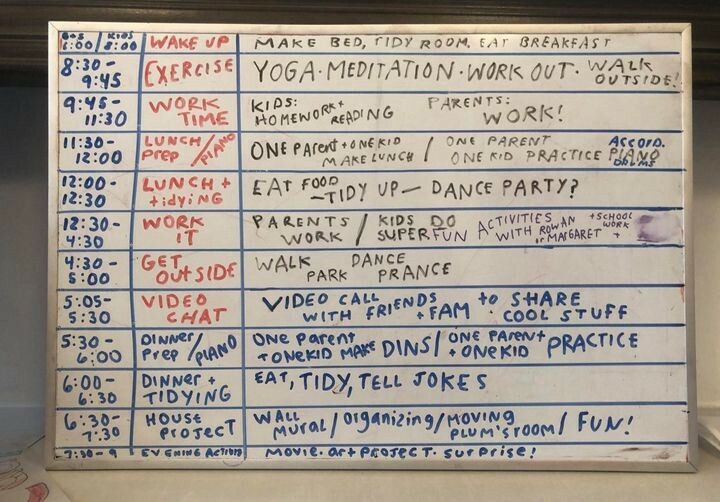 6:00/ KIDS 8:00 WAKE UP MAKE BED, TIDY ROOM, EAT BREAKFAST
8:30-9:45 EXERCISE YOGA · MEDITATION · WORK OUT · WALK OUTSIDE!
9:45-11:30 WORK TIME KIDS: HOMEWORK + READING PARENTS: WORK!
11:30-12:00 LUNCH Prep / PIANO ONE PAreNt + ONE KID MAKE LUNCH / ONE PARENT ONE KID PRACTICE PIANO ACCORD. DRUMS
12:00-12:30 LUNCH + tidyiNG EAT FOOD - TIDY UP - DANCE PARTY?
12:30-4:30 WORK IT PARENTS WORK / KIDS DO SUPERFUN ACTIVITIES WITH ROWAN or MARGARET + SCHOOL WORK +
4:30-5:00 GET OutSIDE WALK DANCE PARK PRANCE
5:05-5:30 VIDEO CHAT VIDEO CALL WITH FRIENDS + FAM to SHARE COOL STUFF
5:30-6:00 DINNER Prep / PIANO ONE Parent + ONE KID MAKE DINS / ONE PARENt + ONE KID PRACTICE
6:00-6:30 DINNER + TIDYING EAT, TIDY, TELL JOKES
6:30-7:30 HOUSE ProjecT WALL Mural / Organizing / MOVING PLUM'S ROOM / FUN!
7:30-9 EVENING Activity MOVIE · art PROJECT · surprise!